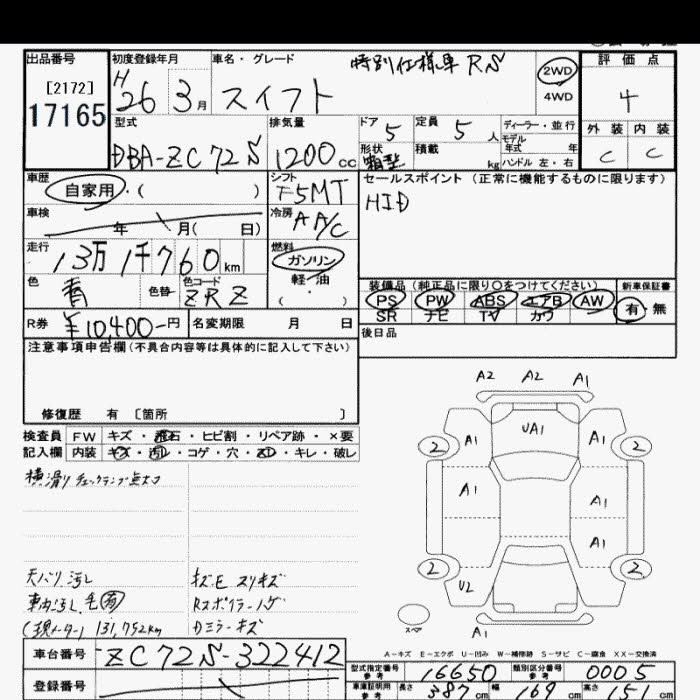 出品番号
[2172]
17165
初度登録年月
H 26 3月
車名・グレード
特別仕様車 RS
スイフト
2WD
4WD
評価点
4
外装 内装
C C
型式
DBA-ZC72S
排気量
1200cc
ドア 5
形状 箱型
定員 5人
積載 kg
ディーラー・並行
モデル年式 年
ハンドル 左・右
車歴
自家用・( )
シフト
F5MT
セールスポイント (正常に機能するものに限ります)
HID
車検
年 月( 日)
冷房
AA/C
走行
13万1千760km
燃料
ガソリン
軽・油
( )
色
青
色替
色コード
ZRZ
装備品 (純正品に限り〇をつけてください)
PS PW ABS エアB AW
SR ナビ TV カワ
新車保証書
有・無
R券
¥10,400-円
名変期限 月 日
後日品
注意事項申告欄(不具合内容等は具体的に記入して下さい)
修復歴 有 〔箇所 〕
検査員記入欄
FW キズ・飛石・ヒビ割・リペア跡・×要
内装 キズ・汚レ・コゲ・穴・・キレ・破レ
横滑りチェックランプ点灯
天バリ汚レ
車内汚レ、毛有
(現メーター) 131,752km
キズE スリキズ
Rスポイラーハゲ
Gミラーキズ
A2 A2 A1
UA1
2 A1 A1 2
A1 A1
A1
2 U2 2
スペア
A1
A-キズ E-エクボ U-凹み W-補修跡 S-サビ C-腐食 XX-交換済
車台番号
ZC72S-322412
登録番号
型式指定番号 参考 16650
類別区分番号 参考 0005
車庫証明用 参考 長さ 387cm 幅 169cm 高さ 151cm